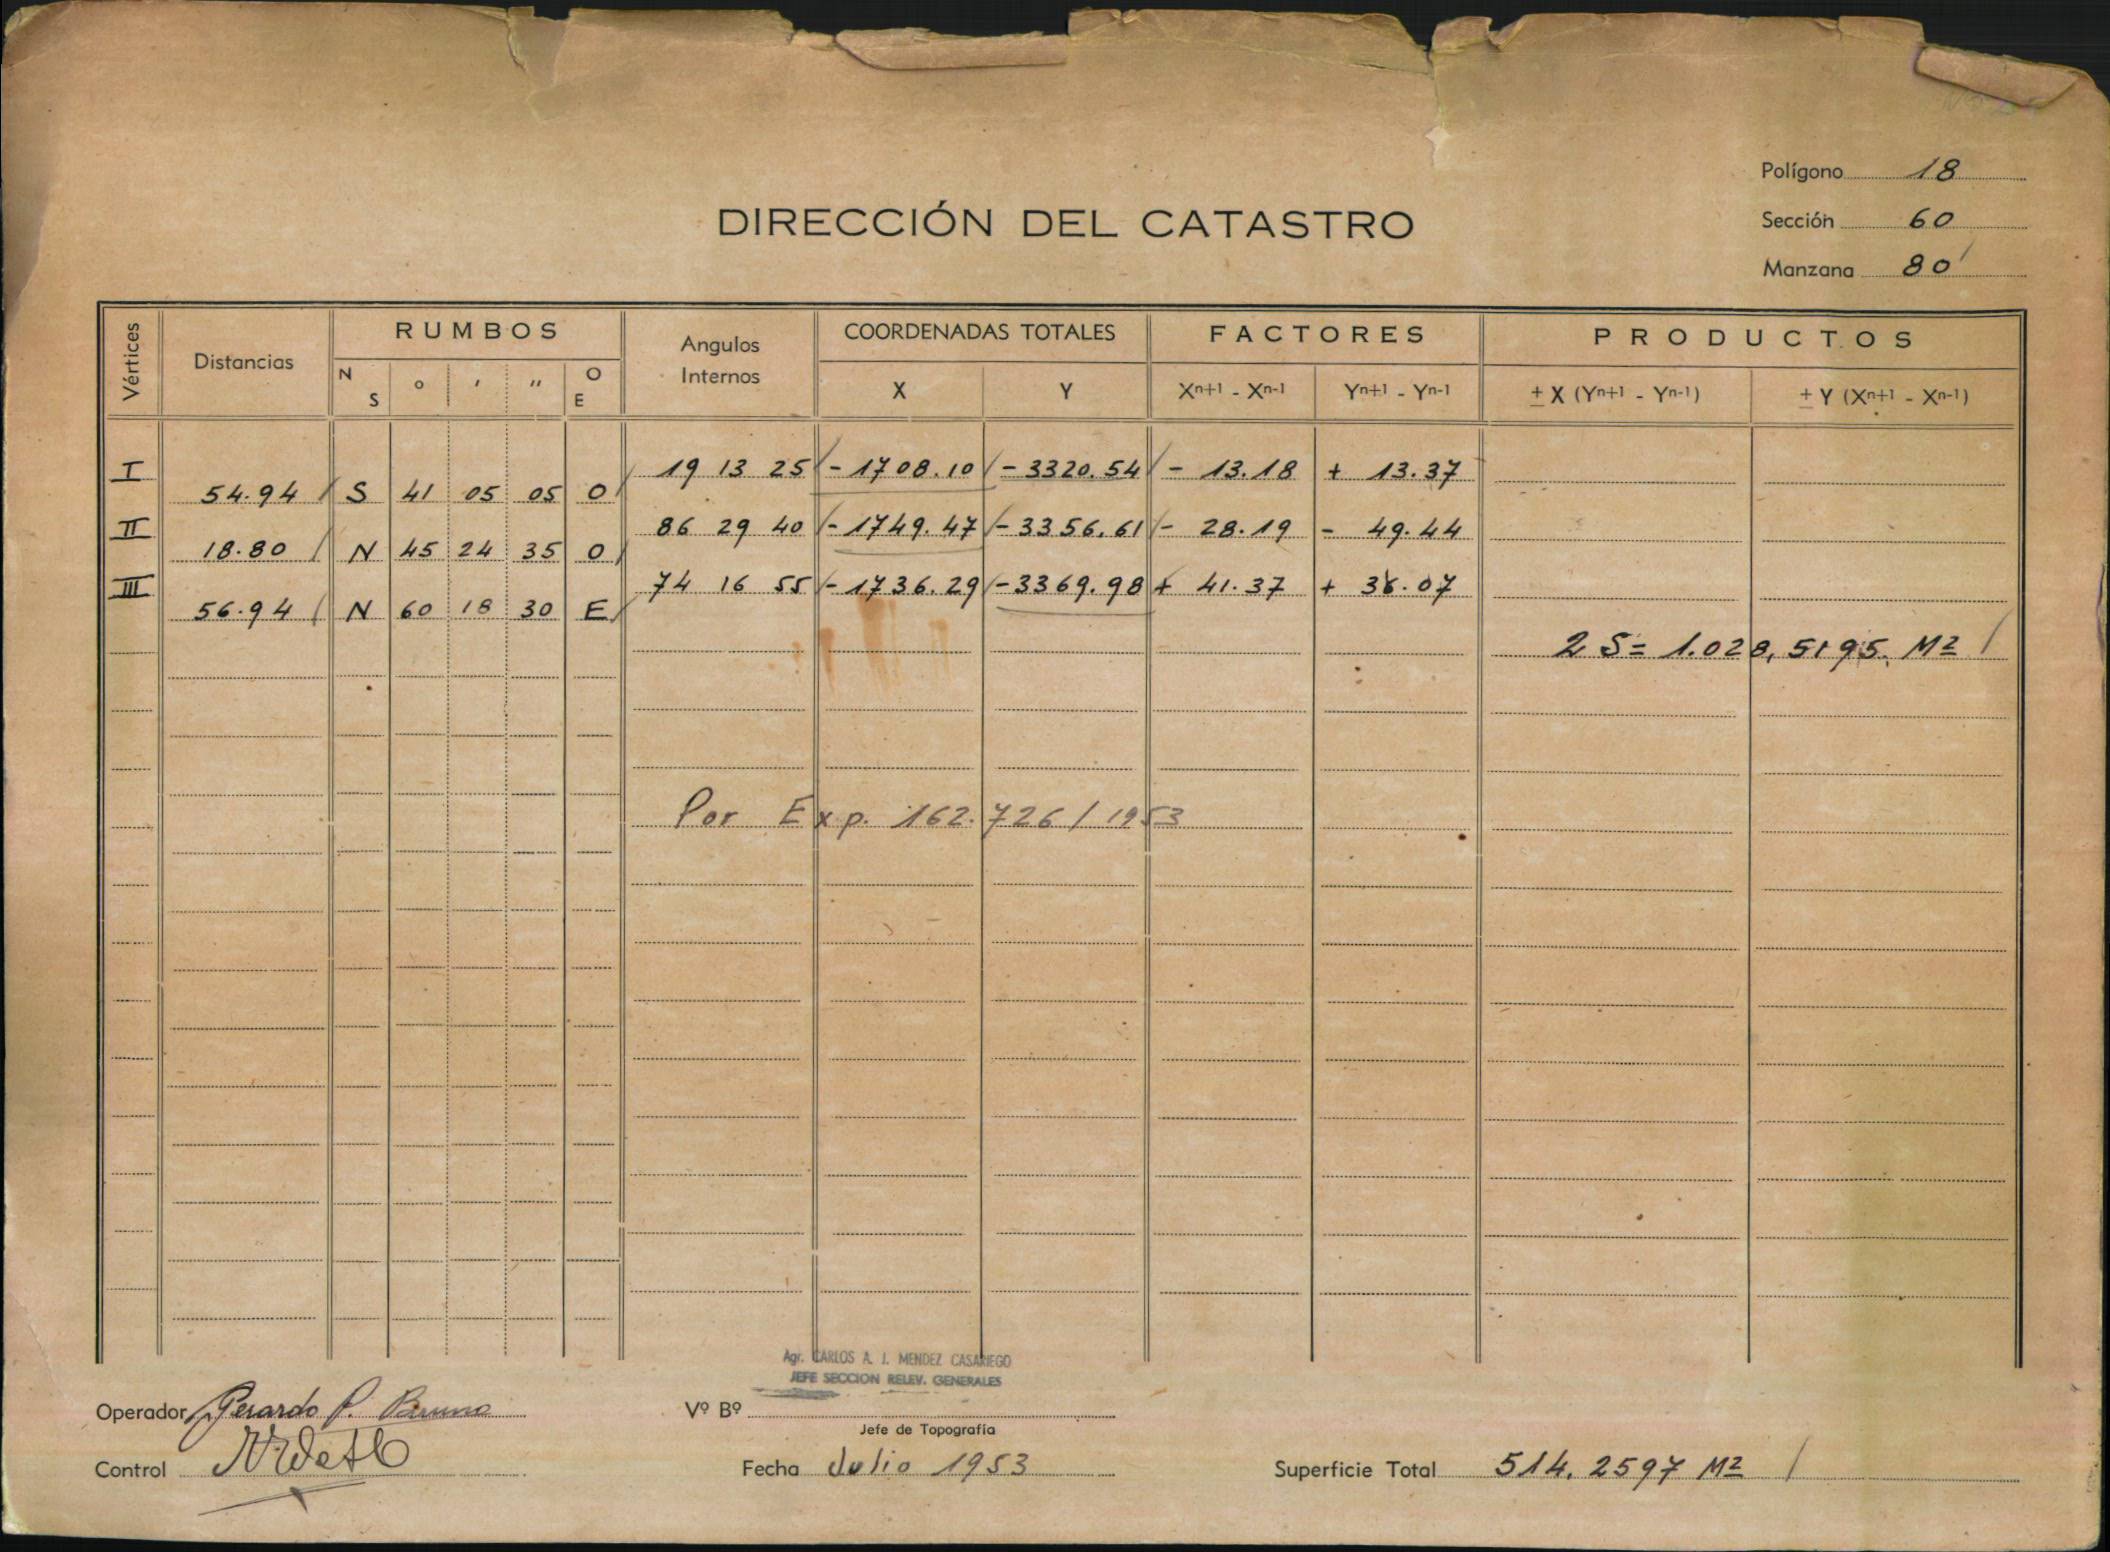 Polígono 18
DIRECCIÓN DEL CATASTRO
Sección 60
Manzana 80
Vértices Distancias RUMBOS Angulos Internos COORDENADAS TOTALES FACTORES PRODUCTOS
N S ° ' " O E X Y Xⁿ⁺¹ - Xⁿ⁻¹ Yⁿ⁺¹ - Yⁿ⁻¹ ± X (Yⁿ⁺¹ - Yⁿ⁻¹) ± Y (Xⁿ⁺¹ - Xⁿ⁻¹)
I 19 13 25 - 1708.10 - 3320.54 - 13.18 + 13.37
54.94 S 41 05 05 O
II 86 29 40 - 1749.47 - 3356.61 - 28.19 - 49.44
18.80 N 45 24 35 O
III 74 16 55 - 1736.29 - 3369.98 + 41.37 + 36.07
56.94 N 60 18 30 E
2 S = 1.028,5195 M²
Por Exp. 162.726 / 1953
Agr. CARLOS A. J. MENDEZ CASARIEGO
JEFE SECCION RELEV. GENERALES
Operador Gerardo P.
Vº Bº
Jefe de Topografía
Control
Fecha Julio 1953
Superficie Total 514.2597 M²